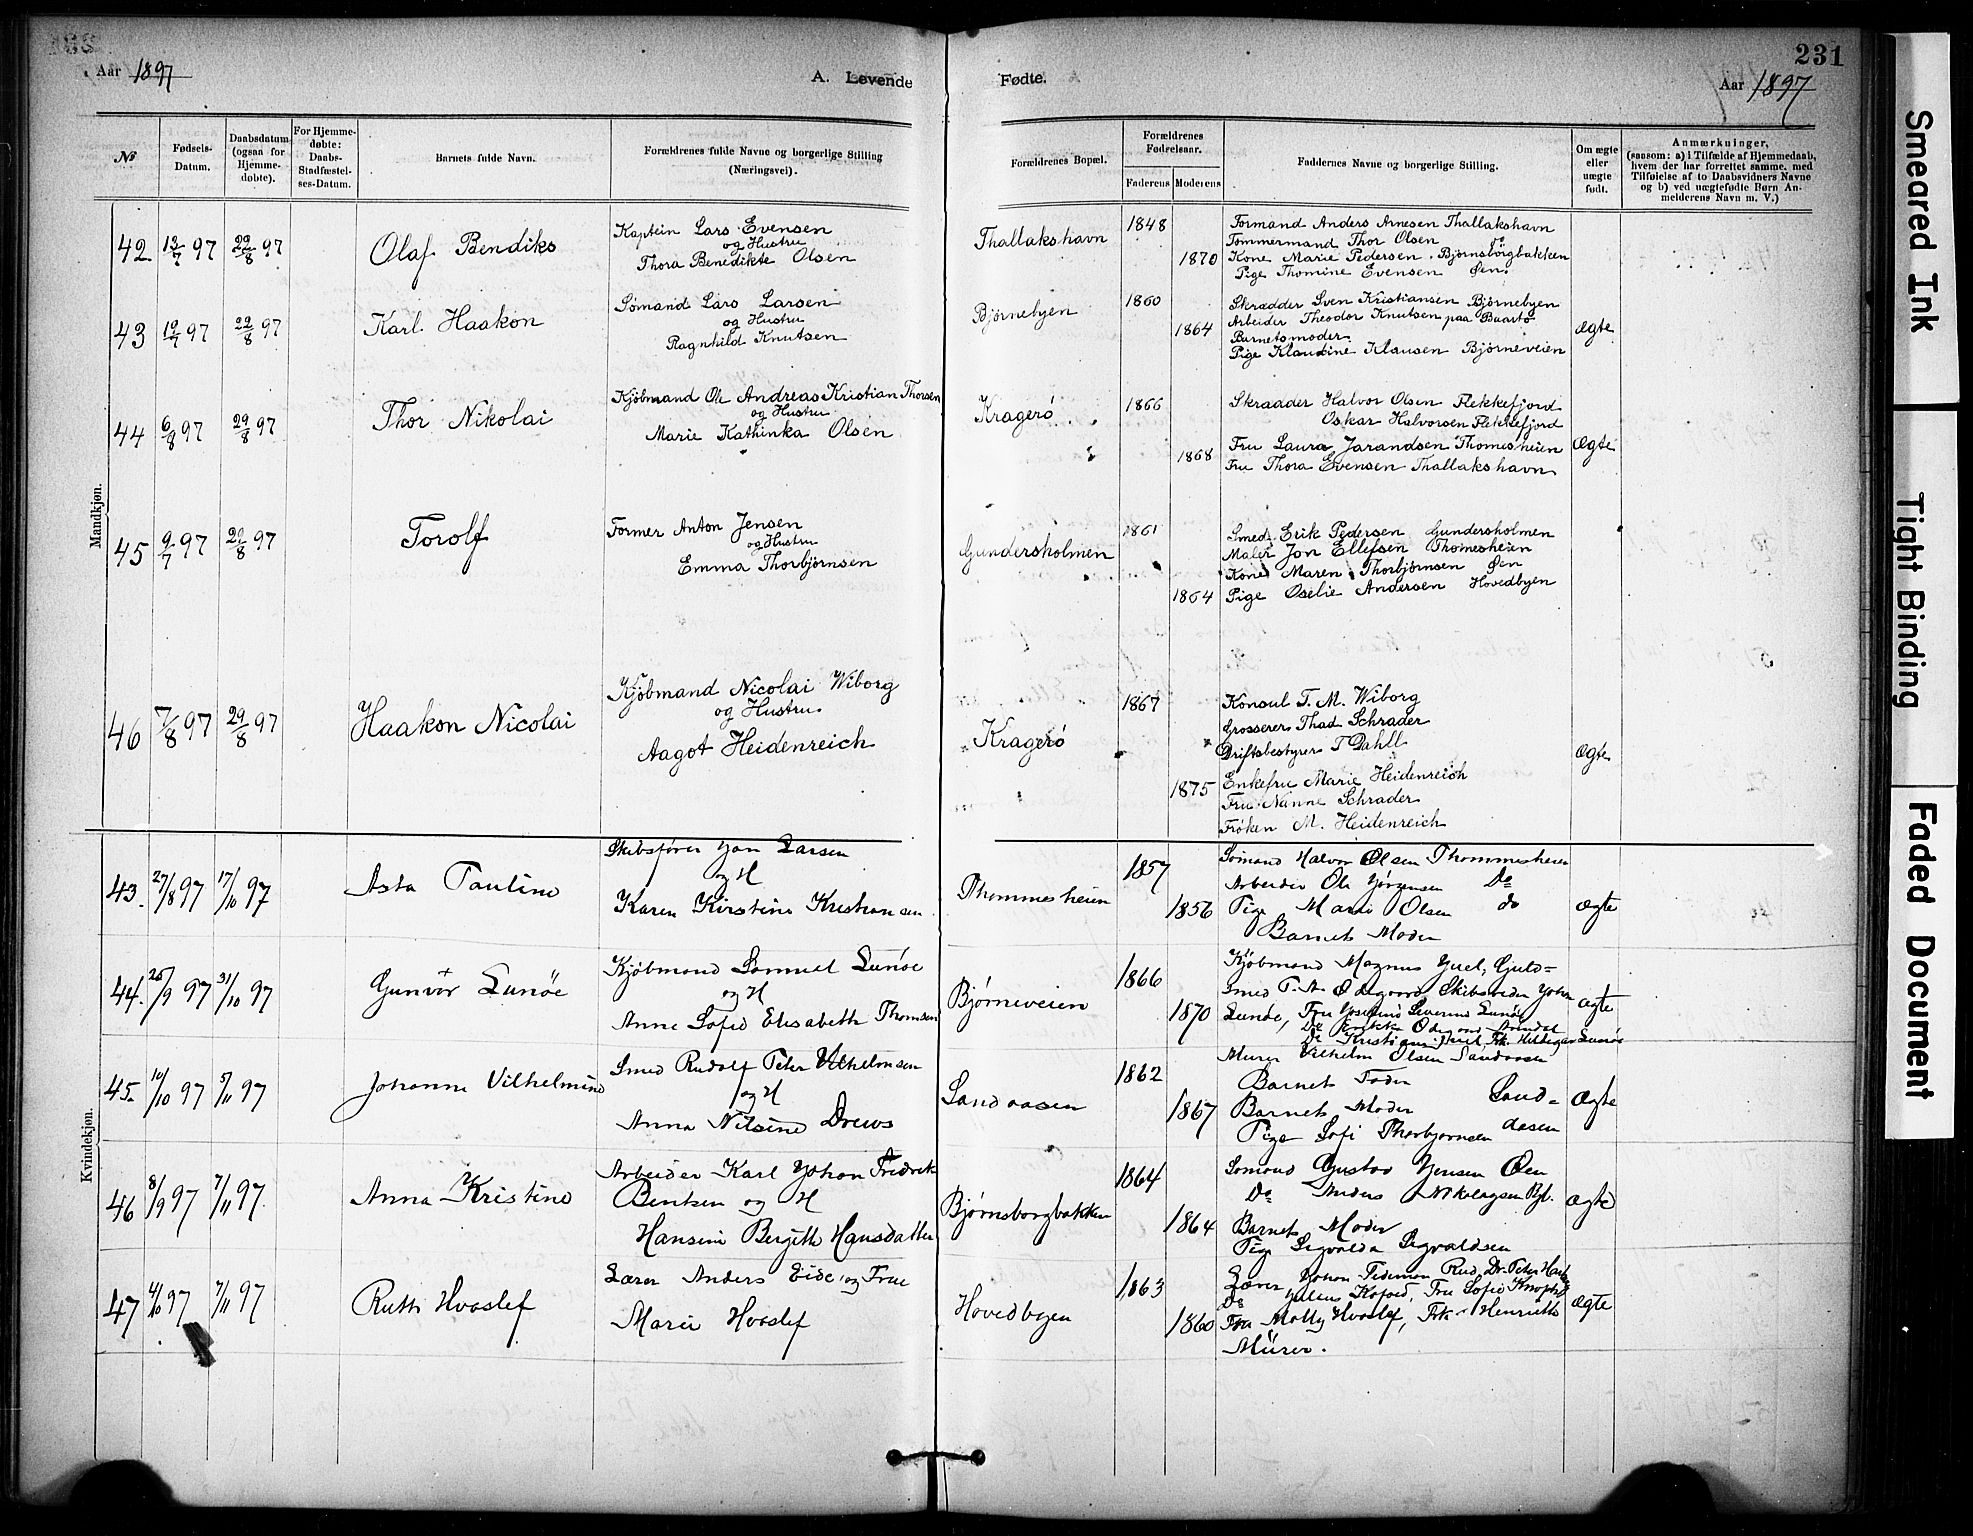 231
Aar 1897
A. Levende
Fødte.
Aar 1897
№
Fødsels-Datum.
Daabsdatum (ogsaa for Hjemme-døbte).
For Hjemme-døbte: Daabs-Stadfæstel-ses-Datum.
Barnets fulde Navn.
Forældrenes fulde Navne og borgerlige Stilling (Næringsvei).
Forældrenes Bopæl.
Forældrenes Fødselsaar.
Faderens Moderens
Faddernes Navne og borgerlige Stilling.
Om ægte eller uægte født.
Anmærkninger,
(saasom: a) i Tilfælde af Hjemmedaab, hvem der har forrettet samme, med Tilføielse af to Daabsvidners Navne og b) ved uægtefødte Børn An-melderens Navn m. V.)
Mandkjøn.
42 13/7 97 29/8 97 Olaf Bendiks
Kaptein Lars Evensen
og Hustru
Thora Benedikte Olsen
Thallakshavn 1848 1870
Formand Anders Arnesen Thallakshavn
Tømmermand Thor Olsen do
Kone Marie Pedersen Bjørnsborgbakken
Pige Thomine Evensen Øen
43 19/7 97 22/8 97 Karl Haakon
Sømand Lars Larsen
og Hustru
Ragnhild Knutsen
Bjørnebyen 1860 1864
Skrædder Sven Kristiansen Bjørnebyen
Arbeider Theodor Knutsen paa Buartø
Barnets moder
Pige Klaudine Klausen Bjørneveien
Ægte
44 6/8 97 29/8 97 Thor Nikolai
Kjøbmand Ole Andreas Kristian Thorsen
og Hustru
Marie Kathinka Olsen
Kragerø 1866 1868
Skrædder Halvor Olsen Flekkefjord
Oskar Halvorsen Flekkefjord
Fru Laura Jarandsen Thomesheien
Fru Thora Evensen Thallakshavn
Ægte
45 9/7 97 29/8 97 Torolf
Former Anton Jensen
og Hustru
Emma Thorbjørnsen
Gundersholmen 1861 1864
Smed Erik Pedersen Gundersholmen
Maler Jon Ellefsen Thomesheien
Kone Maren Thorbjørnsen Øen
Pige Oselie Andersen Hovedbyen
46 7/8 97 29/8 97 Haakon Nicolai
Kjøbmand Nicolai Wiborg
og Hustru
Aagot Heidenreich
Kragerø 1867 1875
Konsul T. M. Wiborg
Grosserer Thad Schrader
Driftsbestyrer T Dahll
Enkefru Marie Heidenreich
Fru Nanne Schrader
Frøken M. Heidenreich
Ægte
Kvindekjøn.
43. 27/8 97 17/10 97 Asta Pauline
Skibsfører Jan Larsen
og H
Karen Kirstine Kristiansen
Thommesheien 1857 1856
Sømand Halvor Olsen Thommesheien
Arbeider Ole Jørgensen Do
Pige Marie Olsen do
Barnets Moder
Ægte
44. 26/9 97 31/10 97 Gunvor Lunöe
Kjøbmand Samuel Lunöe
og H
Anne Sofie Elisabeth Thomsen
Bjørneveien 1866 1870
Kjøbmand Magnus Juel, Guld=
smed T. A. Ødegaard, Skibsreder John
Lunöe, Fru Josefine Severine Lunöe
Ægte
45. 10/10 97 5/11 97 Johanne Vilhelmine
Smed Rudolf Peter Vilhelmsen
og H
Anna Nilsine Drews
Sandaasen 1862 1867
Murer Vilhelm Olsen Sandaasen
Barnets Fader
Barnets Moder Sand=
Pige Sofi Thorbjørnsen aasen
Ægte
46 8/9 97 7/11 97. Anna Kristine
Arbeider Karl Johan Fredrik
Bentsen og H
Hansine Bergitte Hansdatter
Bjørnsborgbakken 1864 1864
Sømand Gustav Jensen Øen
Do Anders Nikolaysen Bjb.
Barnets Moder
Pige Sigvalda Sigvaldsen
Ægte
47 4/10 97 7/11 97 Ruth Hvoslef
Lærer Anders Eide og Frue
Marie Hvoslef
Hovedbyen 1863 1860
Lærer Johan Tideman Rud, Dr. Peter
Do Julius Kofoed, Fru Sofie Knoph
Fru Molly Hvoslef, Frk Henriette
Mürer.
Ægte
Smeared Ink
Tight Binding
Faded Document